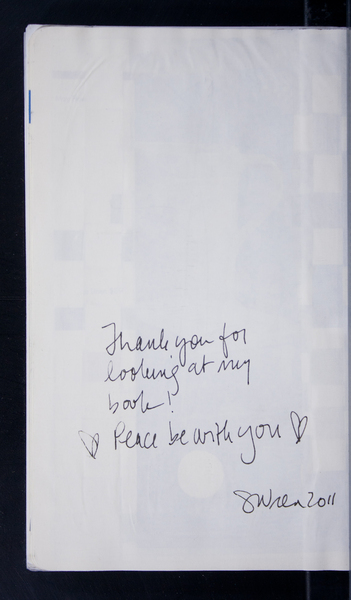 Thank you for
looking at my
book!
♡ Peace be with you ♡
SWren 2011